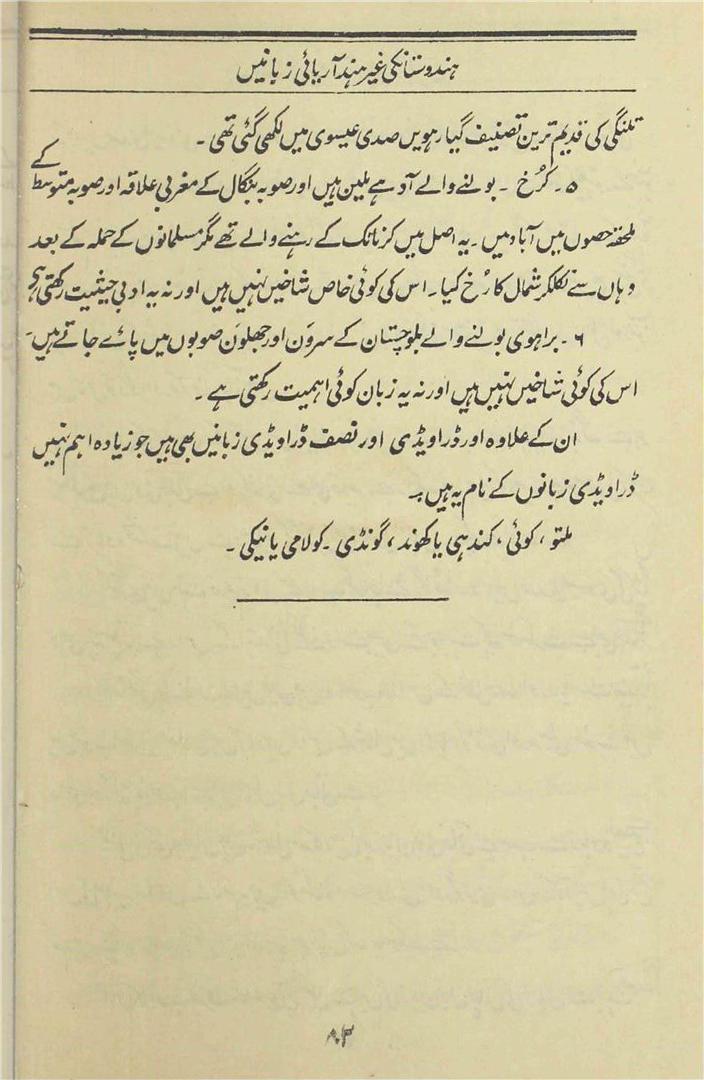 ہندوستانکی غیر ہند آریائی زبانیں
تلنگی کی قدیم ترین تصنیف گیارہویں صدی عیسوی میں لکھی گئی تھی ۔
۵ ۔ کرُخ ۔ بولنے والے آدہے ملین ہیں اور صوبہ بنگال کے مغربی علاقہ اور صوبہ متوسط کے
ملحقہ حصوں میں آباد میں ۔ یہ اصل میں کرناٹک کے رہنے والے تھے مگر مسلمانوں کے حملہ کے بعد
وہاں سے نکلکر شمال کا رُخ کیا ۔ اس کی کوئی خاص شاخیں نہیں ہیں اور نہ یہ ادبی حیثیت رکھتی ہے
۶ ۔ براہوی بولنے والے بلوچستان کے سروَن اور جھلوَن صوبوں میں پائے جاتے ہیں ۔
اس کی کوئی شاخیں نہیں ہیں اور نہ یہ زبان کوئی اہمیت رکھتی ہے ۔
ان کے علاوہ اور ڈراویڈی اور نصف ڈراویڈی زبانیں بھی ہیں جو زیادہ اہم نہیں
ڈراویڈی زبانوں کے نام یہ ہیں ۔
ملتو ، کوئی ، کندہی یا کھوند ، گونڈی ۔ کولامی یا نیکی ۔
۸۳